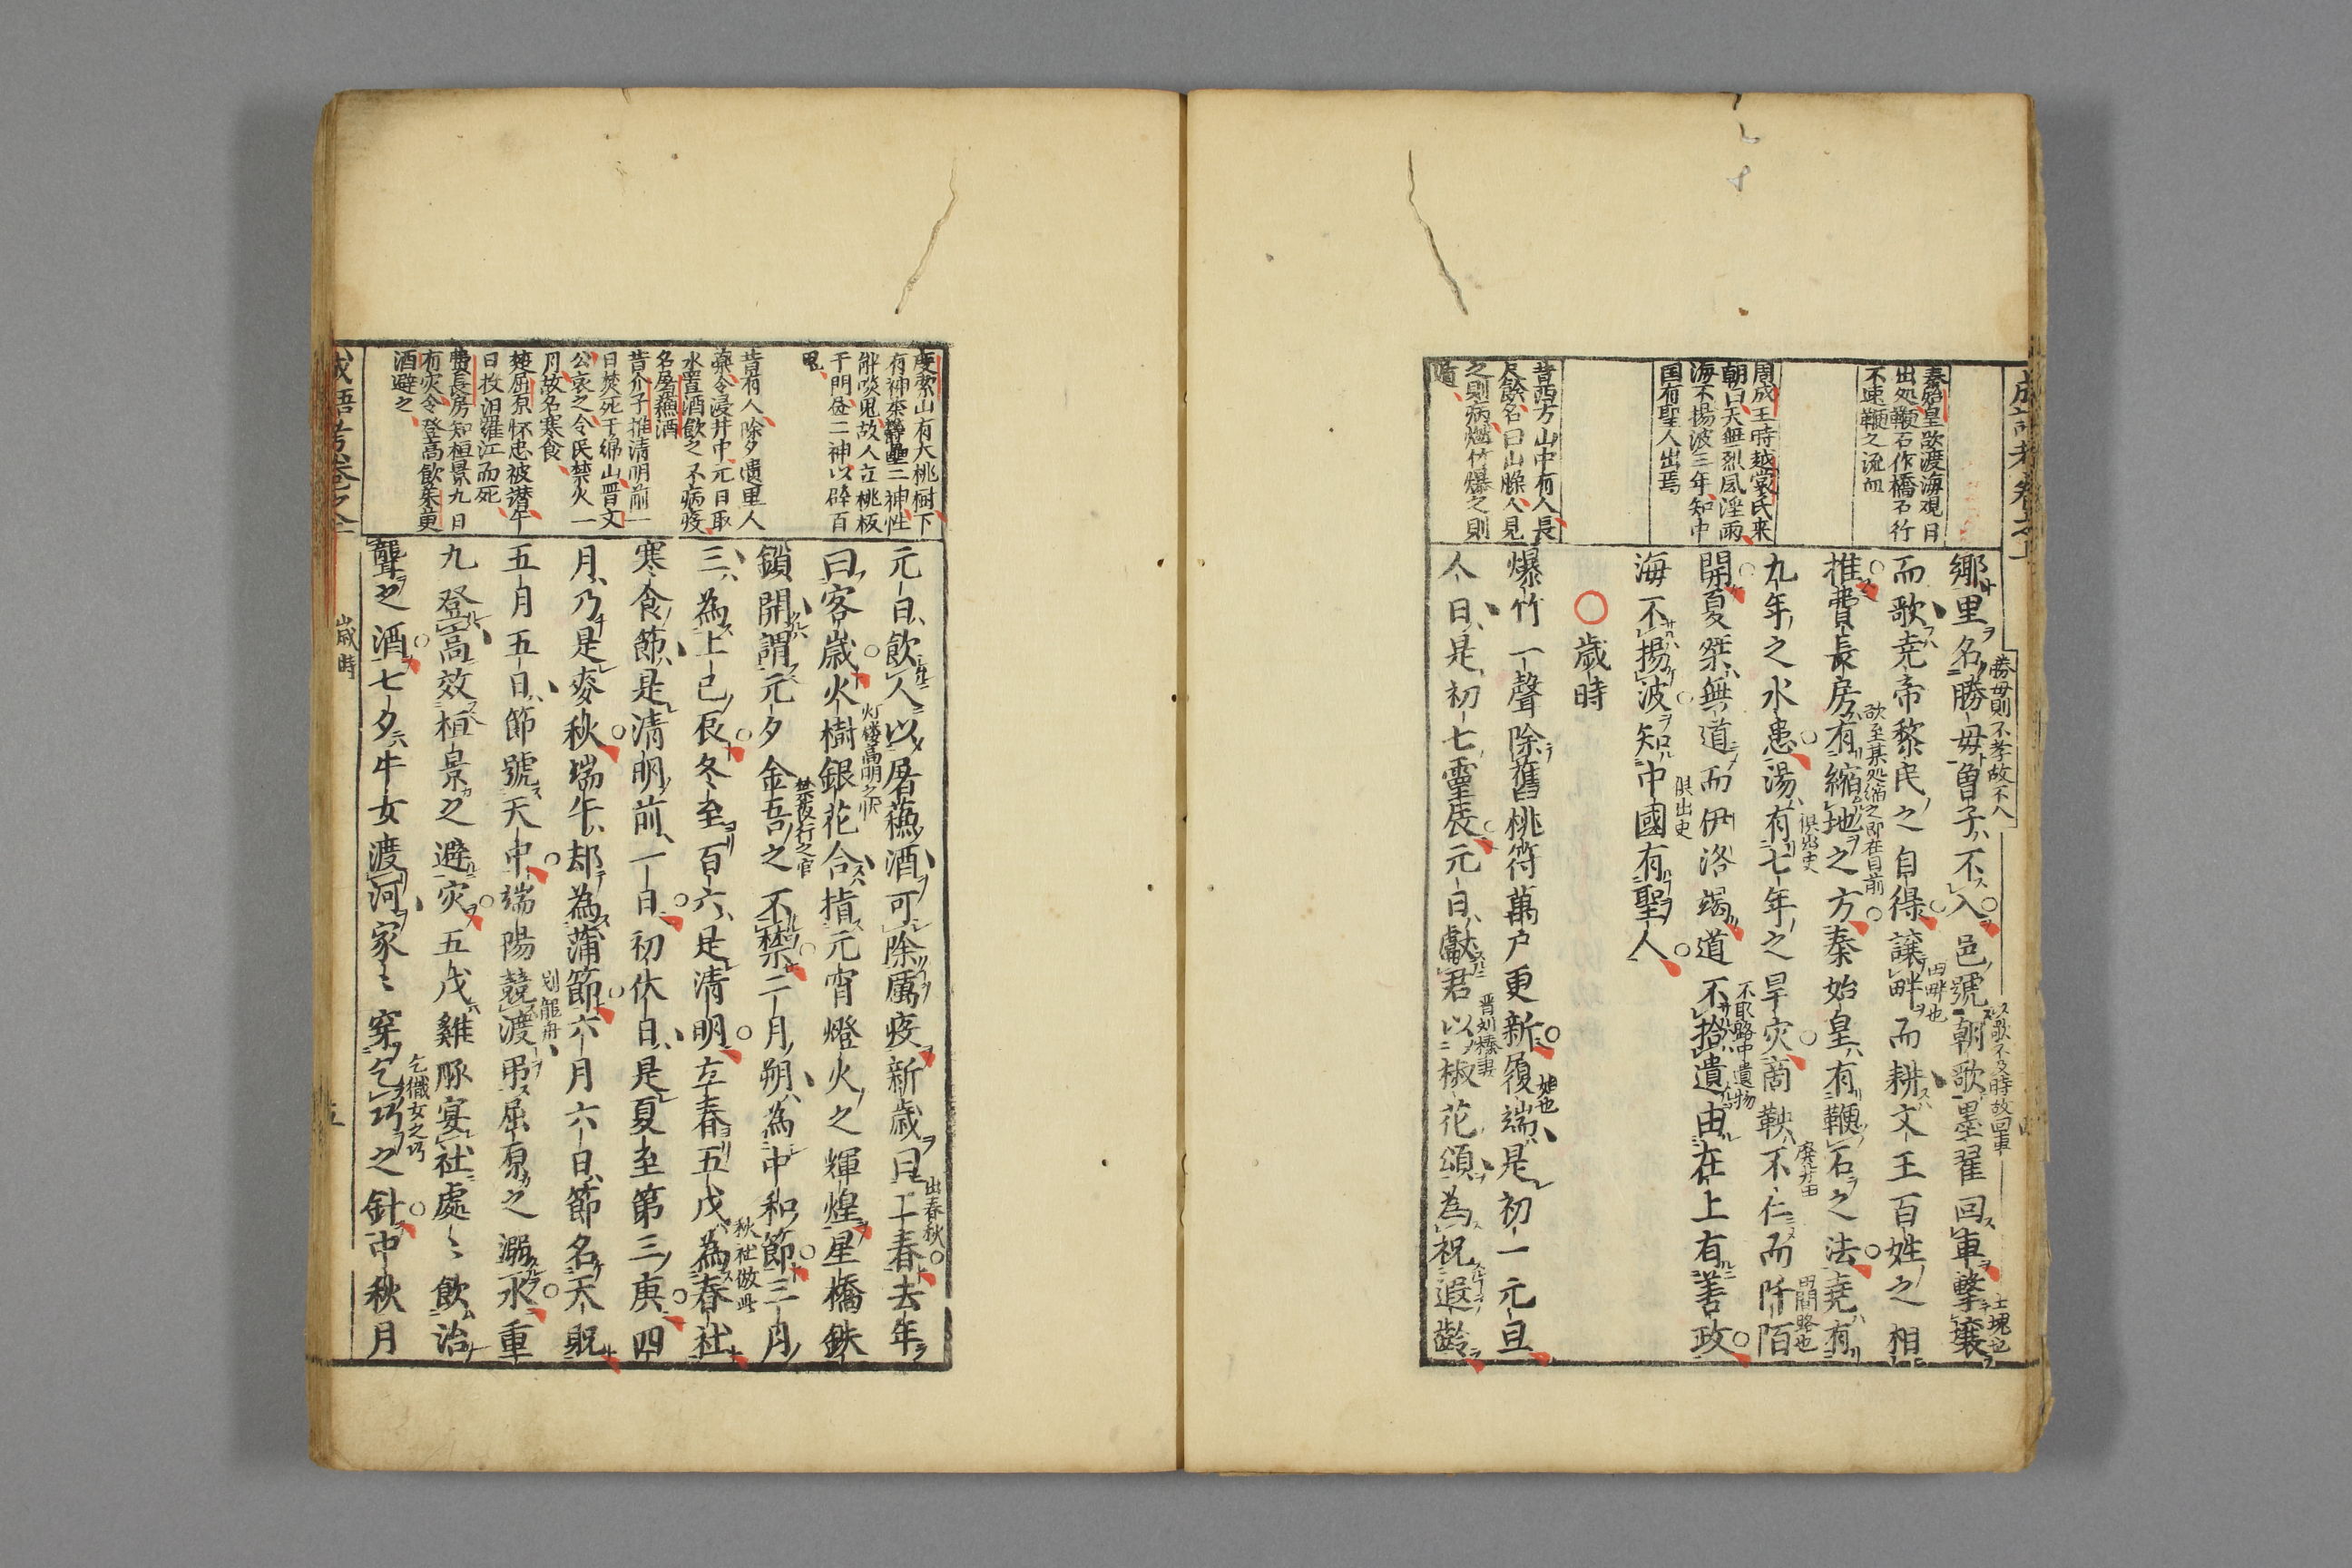 秦始皇欲渡海观日
出処鞭石作橋石行
不速鞭之流血
周成王時越裳氏来
朝曰天無烈風淫雨
海不揚波三年知中
国有聖人出焉
昔西方山中有人長
尺餘名曰山臊人見
之則病燃竹爆之則
鄉里名勝母曽子不入邑號朝歌墨翟回車擊壤
勝母則不孝故不入
歌不及時故回車
土塊也
而歌尭帝黎民之自得讓畔而耕文王百姓之相
田畔也
推費長房有縮地之方秦始皇有鞭石之法尭有
欲至某処縮之即在目前
九年之水患湯有七年之旱灾商鞅不仁而阡陌
俱出史
廃井田
田間路也
開夏桀無道而伊洛竭道不拾遺由在上有善政
不取路中遺物
海不揚波知中國有聖人
俱出史
○歲時
爆竹一聲除舊桃符萬户更新履端是初一元旦
始也
人日是初七靈辰元日獻君以椒花頌為祝遐齡
晋刘榛妻
度索山有大桃樹下
有神荼欝壘二神性
能啖鬼故人立桃板
于門畫二神以辟百
鬼
昔有人除夕遺里人
藥令浸井中元日取
水置酒飲之不病疫
名屠蘓酒
昔介子推清明前一
日焚死于綿山晋文
公哀之令民禁火一
月故名寒食
楚屈原怀忠被譖午
日投汨羅江而死
費長房知桓景九日
有灾令登高飲茱萸
酒避之
元日飲人以屠蘓酒可除厲疫新歲曰王春去年
出春秋
曰客歲火樹銀花合指元宵燈火之輝煌星橋鉄
灯楼高明之状
鎖開謂元夕金吾之不禁二月朔為中和節三月
禁夜行之官
三為上巳辰冬至百六是清明立春五戊為春社
秋社倣此
寒食節是清明前一日初伏日是夏至第三庚四
月乃是麥秋端午却為蒲節六月六日節名天貺
五月五日節號天中端陽競渡吊屈原之溺水重
划龍舟
九登高效桓景之避灾五戊雞豚宴社處〻飲治
聾之酒七夕牛女渡河家〻穿乞巧之針中秋月
乞織女之巧
歲時